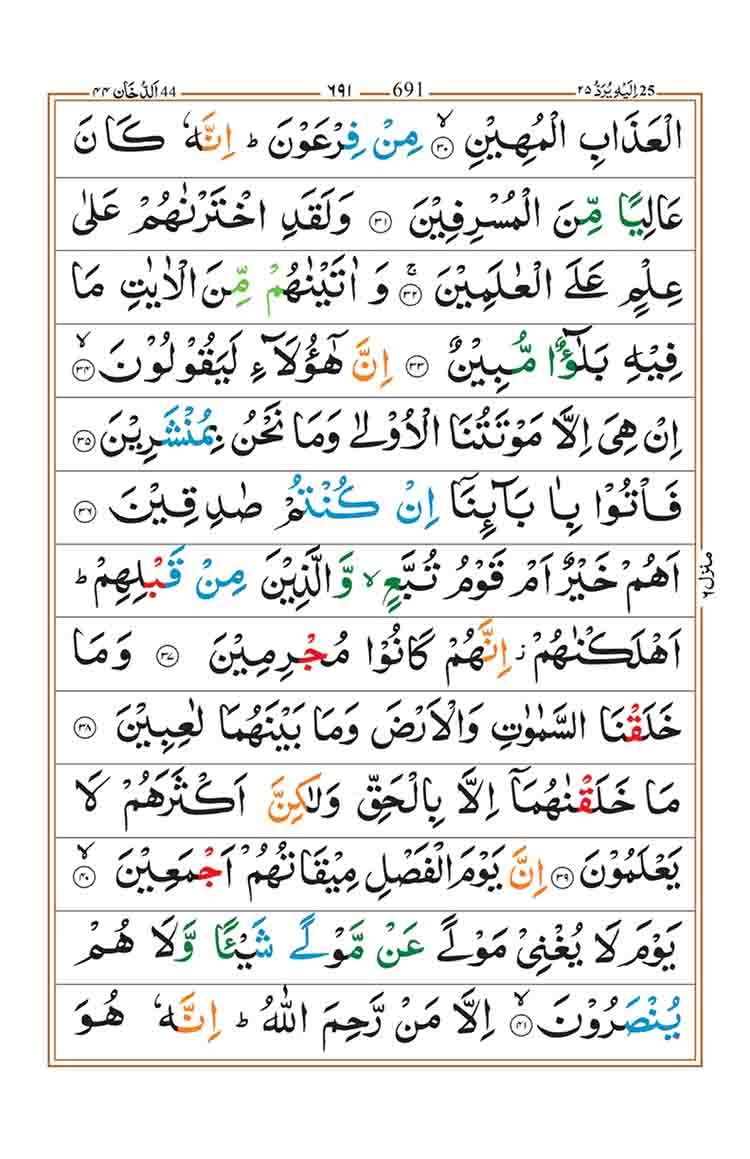 25 اِلَيْهِ يُرَدُّ ٢٥ 691 ٦٩١ 44 اَلدُّخَان ٤٤
الْعَذَابِ الْمُهِيْنِ ۙ‏﴿۳۰﴾ مِنْ فِرْعَوْنَ ؕ اِنَّهٗ كَانَ
عَالِيًا مِّنَ الْمُسْرِفِيْنَ ﴿۳۱﴾ وَلَقَدِ اخْتَرْنٰهُمْ عَلٰى
عِلْمٍ عَلَى الْعٰلَمِيْنَ ۚ‏﴿۳۲﴾ وَ اٰتَيْنٰهُمْ مِّنَ الْاٰيٰتِ مَا
فِيْهِ بَلٰٓؤٌا مُّبِيْنٌ ﴿۳۳﴾ اِنَّ هٰٓؤُلَآءِ لَيَقُوْلُوْنَ ۙ‏﴿۳۴﴾
اِنْ هِىَ اِلَّا مَوْتَتُنَا الْاُوْلٰى وَمَا نَحْنُ بِمُنْشَرِيْنَ ﴿۳۵﴾
فَاْتُوْا بِاٰبَآئِنَاۤ اِنْ كُنْتُمْ صٰدِقِيْنَ ﴿۳۶﴾
اَهُمْ خَيْرٌ اَمْ قَوْمُ تُبَّعٍ ۙ وَّالَّذِيْنَ مِنْ قَبْلِهِمْ ؕ
اَهْلَكْنٰهُمْ ز اِنَّهُمْ كَانُوْا مُجْرِمِيْنَ ﴿۳۷﴾ وَمَا
خَلَقْنَا السَّمٰوٰتِ وَالْاَرْضَ وَمَا بَيْنَهُمَا لٰعِبِيْنَ ﴿۳۸﴾
مَا خَلَقْنٰهُمَاۤ اِلَّا بِالْحَقِّ وَلٰكِنَّ اَكْثَرَهُمْ لَا
يَعْلَمُوْنَ ﴿۳۹﴾ اِنَّ يَوْمَ الْفَصْلِ مِيْقَاتُهُمْ اَجْمَعِيْنَ ۙ‏﴿۴۰﴾
يَوْمَ لَا يُغْنِىْ مَوْلًى عَنْ مَّوْلًى شَيْئًا وَّلَا هُمْ
يُنْصَرُوْنَ ۙ‏﴿۴۱﴾ اِلَّا مَنْ رَّحِمَ اللّٰهُ ؕ اِنَّهٗ هُوَ
منزل ٦